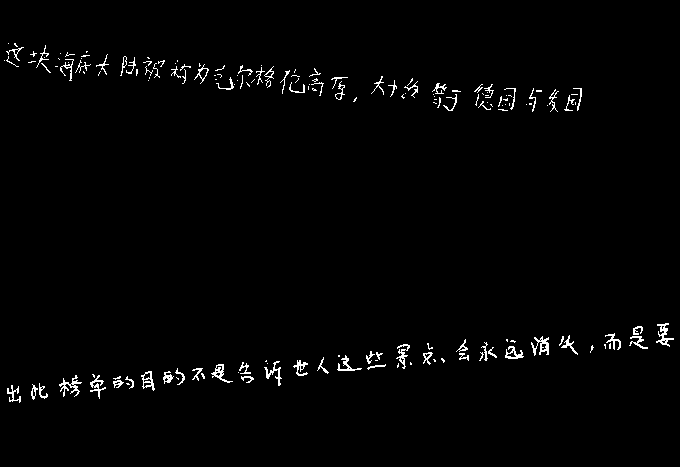 这块海底大陆被称为毛尔格伦高原，大小约等于德国与法国
出此榜单的目的不是告诉世人这些景点会永远消失，而是要